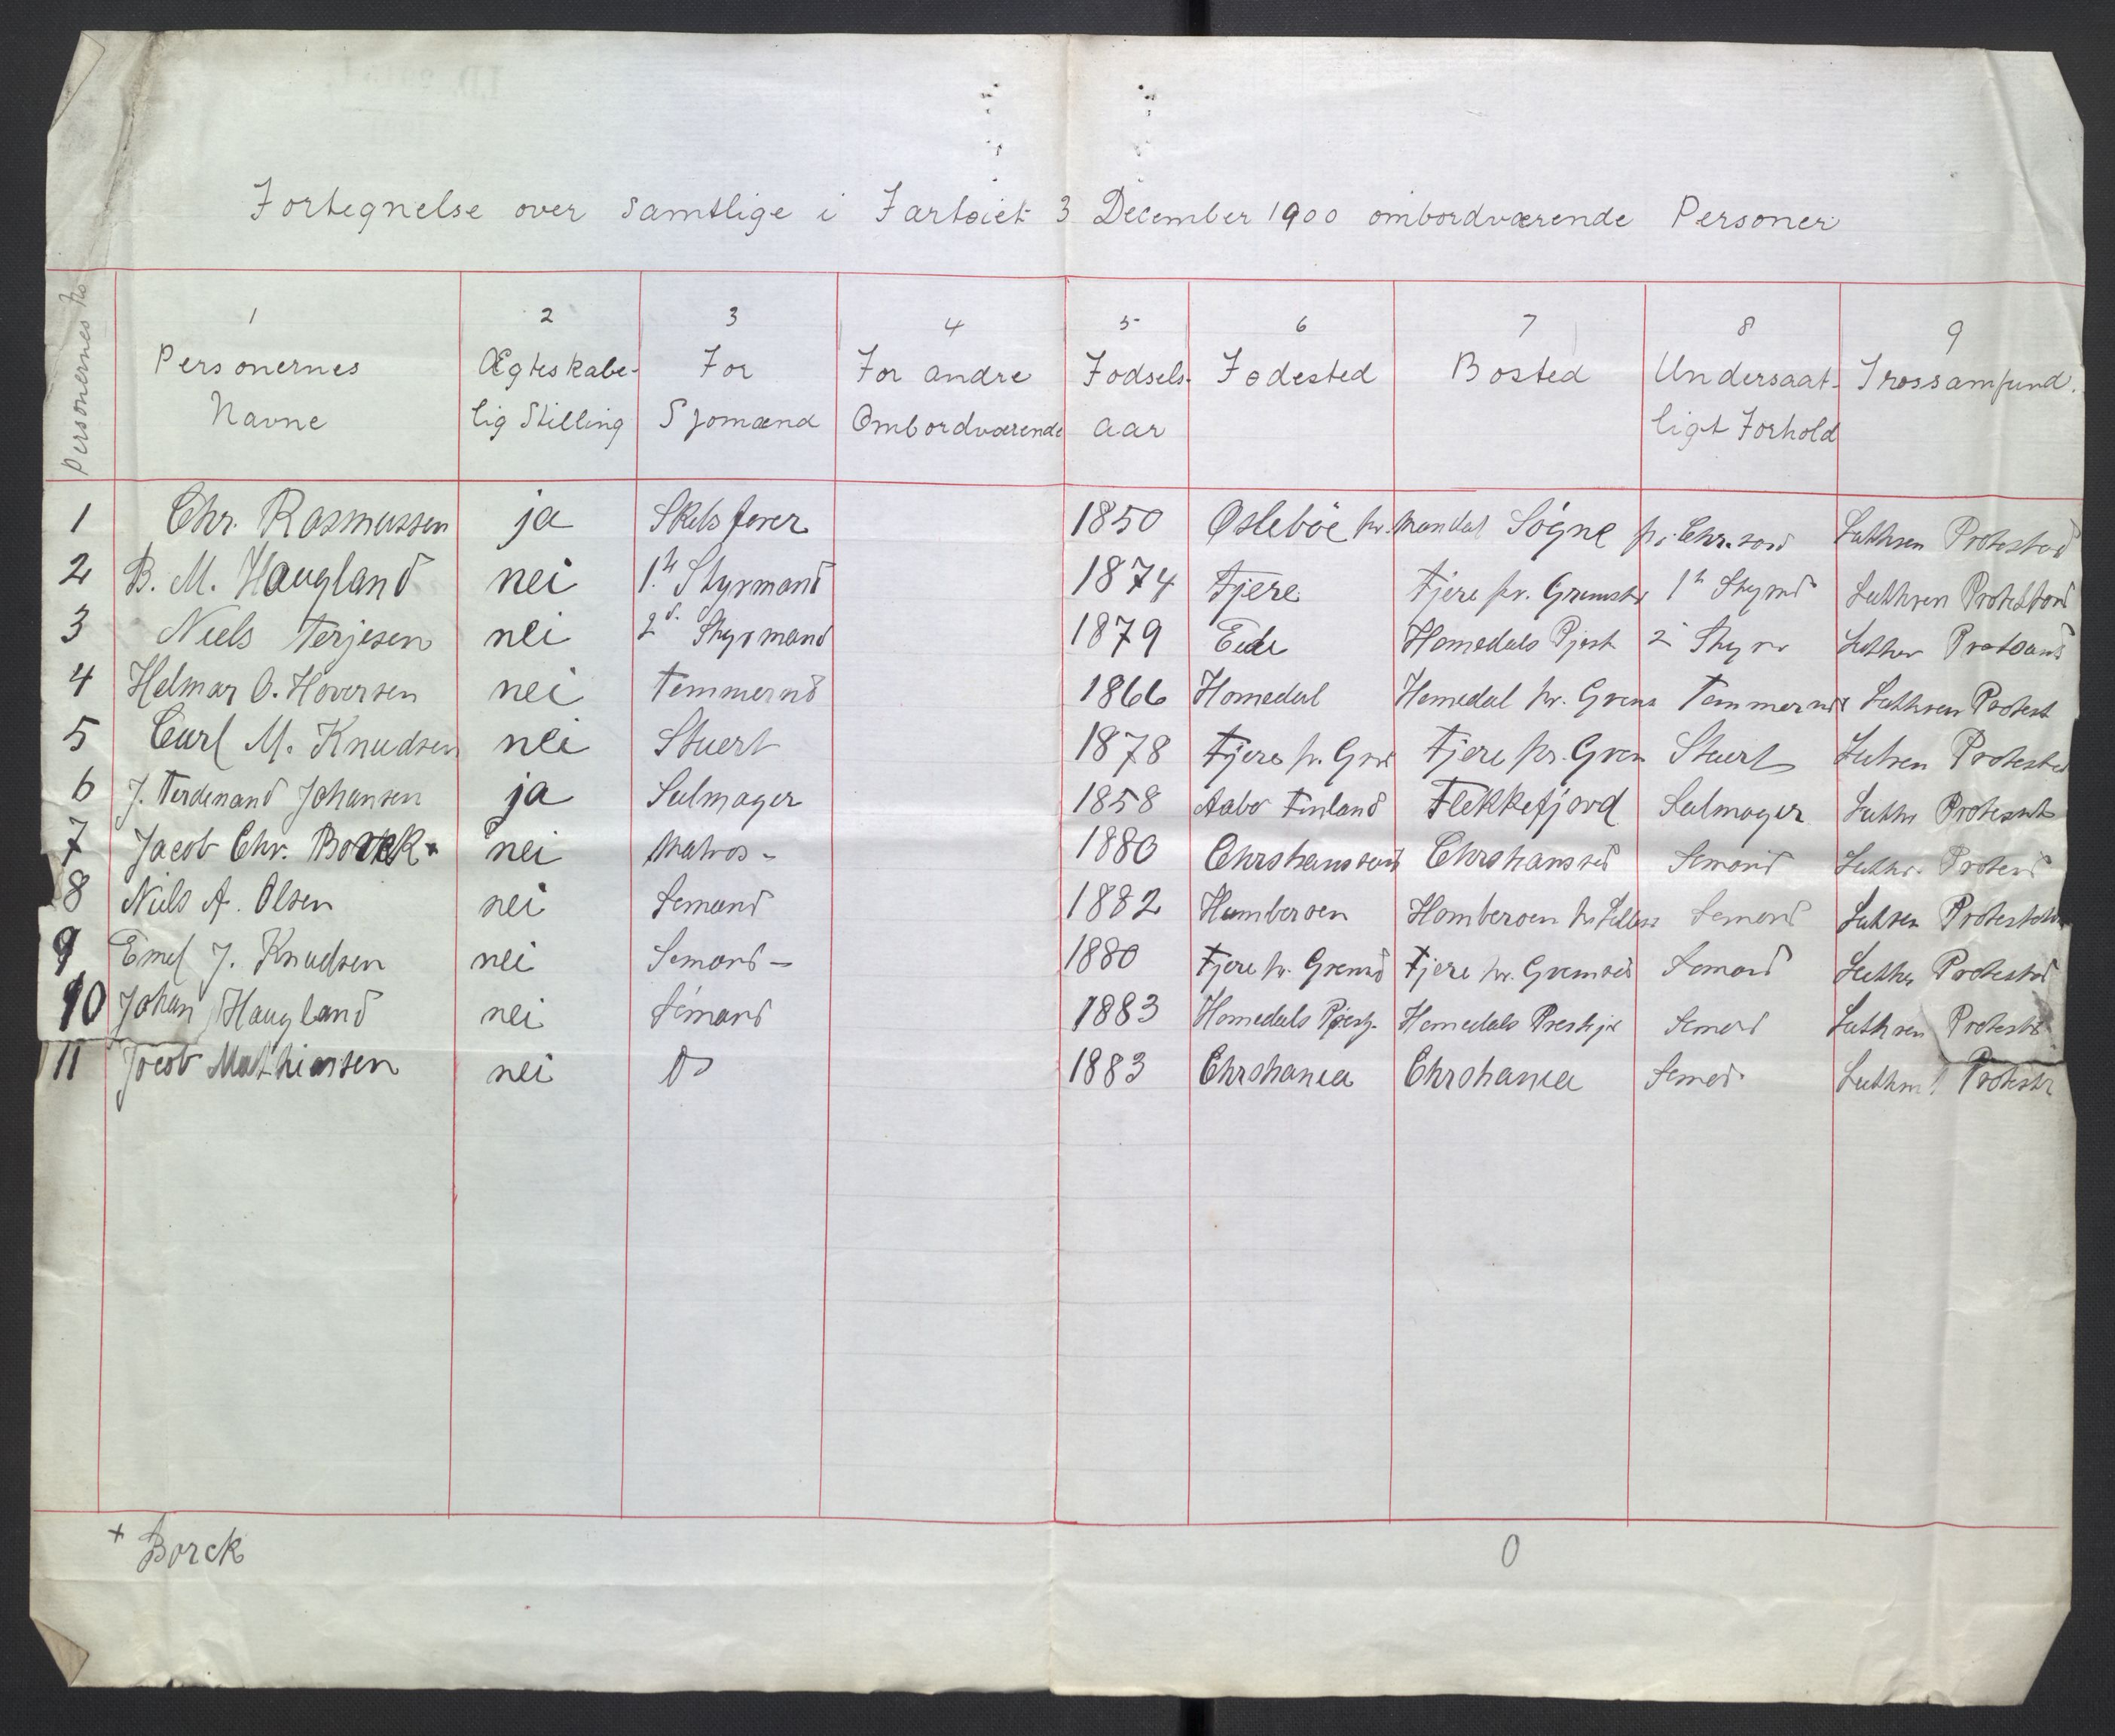 Fortegnelse over samtlige i Fartøiet 3 December 1900 ombordværende Personer
Personernes No
1 2 3 4 5 6 7 8 9
Personernes Navne
Ægteskabe- lig Stilling
For Sjømænd
For andre Ombordværende
Fødsels- aar
Fødested
Bosted
Undersaat- ligt Forhold
Trossamfund.
1 Chr. Rasmussen ja Skibsfører 1850 Øslebøe pr. Mandal Søgne pr. Chr.sand Luthren Protestand
2 B. M. Haugland nei 1ste Styrmand 1874 Fjere Fjere pr. Grimsta 1ste Styrmd Luthren Protestand
3 Niels Terjesen nei 2d. Styrmand 1879 Eide Homedals Pjest 2 Styrm Luther Protesand
4 Helmar O. Hoversen nei Temmermd 1866 Homedal Homedal pr. Grims Temmermd Luthren Protest
5 Carl M. Knudsen nei Stuert 1878 Fjere pr. Grm Fjere pr. Grem Stuert Luthren Protestd
6 J. Ferdenand Johansen ja Seilmager 1858 Aabo Finland Flekkefjord Seilmager Luthr Protesant
7 Jacob Chr. Borck + nei Matros - 1880 Chrstianssand Chrstianssd Semand Luthr. Protend
8 Niels A. Olsen nei Semand 1882 Hombersen Hombersen pr Lilless Semand Luthren Protestant
9 Emel J. Knudsen nei Semand - 1880 Fjere pr. Gremsd Fjere pr. Gremsed Semand Luther Protestd
10 Johan Haugland nei Semand 1883 Homedals Pjest. Homedals Prestgj Semand Luthren Protest
11 Jacob Mathiasen nei Do 1883 Chrstiania Chrstiania Semd Luthrn Protestn
+ Borck
0